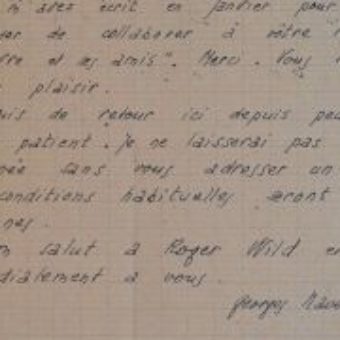 m'avez écrit en janvier pour
de collaborer à vôtre
et ses amis". Merci. Vous
plaisir.
de retour ici depuis peu
patient. je ne laisserai pas
sans vous adresser un
conditions habituelles seront
nes.
salut à Roger Wild e
dialement à vous.
Georges